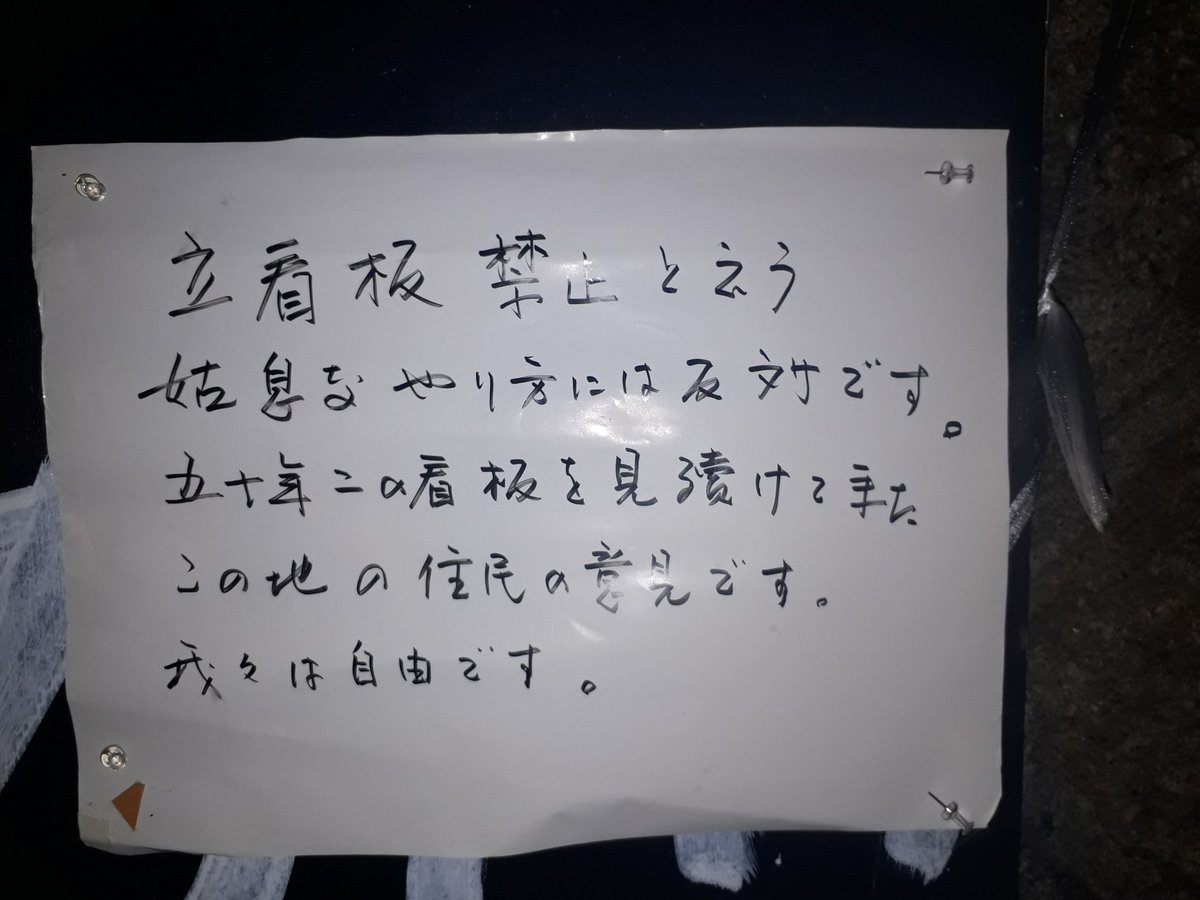 立看板禁止と云う
姑息なやり方には反対です。
五十年この看板を見續けてきた
この地の住民の意見です。
我々は自由です。